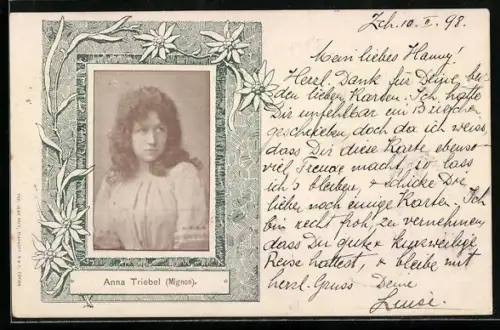 Zch. 10. I. 98.
Mein liebes Hanny!
Herzl. Dank für Deine bei-
den lieben Karten. Ich hätte
Dir unfehlbar ein
geschrieben, doch da ich weiss,
dass Dir diese Karte ebenso
viel Freude macht, so lass
ich's bleiben, & schicke Dir
lieber noch einige Karten. Ich
bin recht froh, zu vernehmen,
dass Du gute & kurzweilige
Reise hattest, & bleibe mit
herzl. Gruss Deine
Luise.
Anna Triebel (Mignon).